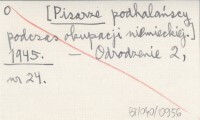 O [Pisarze podhalańscy
podczas okupacji niemieckiej.]
1945. – Odrodzenie 2,
nr 24.